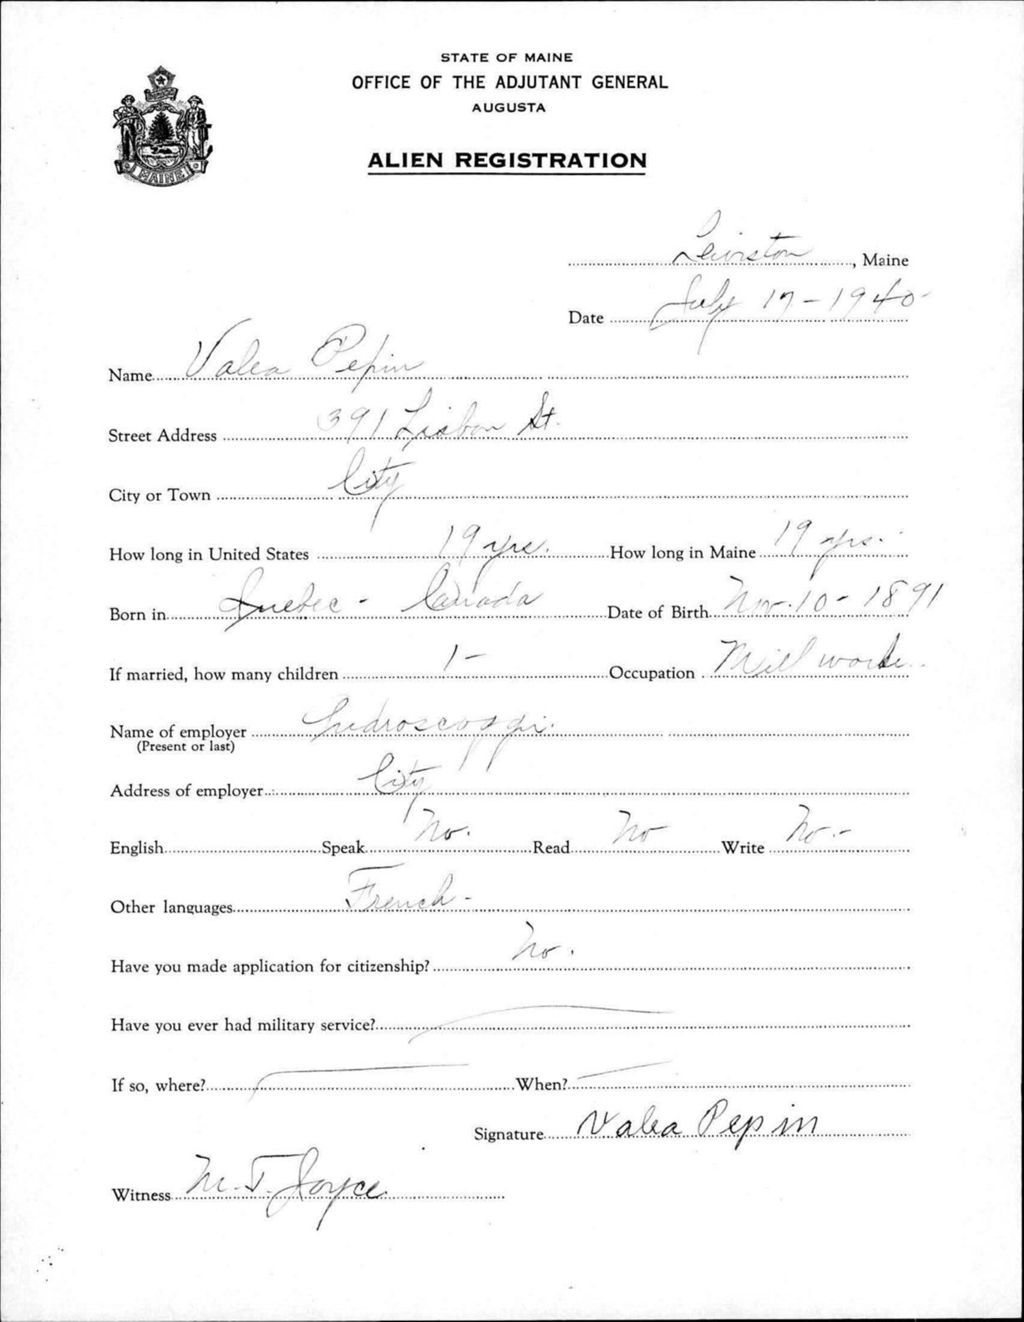 STATE OF MAINE
OFFICE OF THE ADJUTANT GENERAL
AUGUSTA
ALIEN REGISTRATION
MAINE
Lewiston, Maine
Date July 17-1940-
Name Valea Pepin
Street Address 391 Lisbon St.
City or Town City
How long in United States 19 yrs. How long in Maine 19 yrs.
Born in Quebec - Canada Date of Birth Nov. 10 - 1891
If married, how many children 1 - Occupation Mill work
Name of employer Androscoggi.
(Present or last)
Address of employer City
English Speak No. Read No Write No.-
Other languages French -
Have you made application for citizenship? No.
Have you ever had military service?
If so, where? When?
Signature Valea Pepin
Witness M. T. Joyce